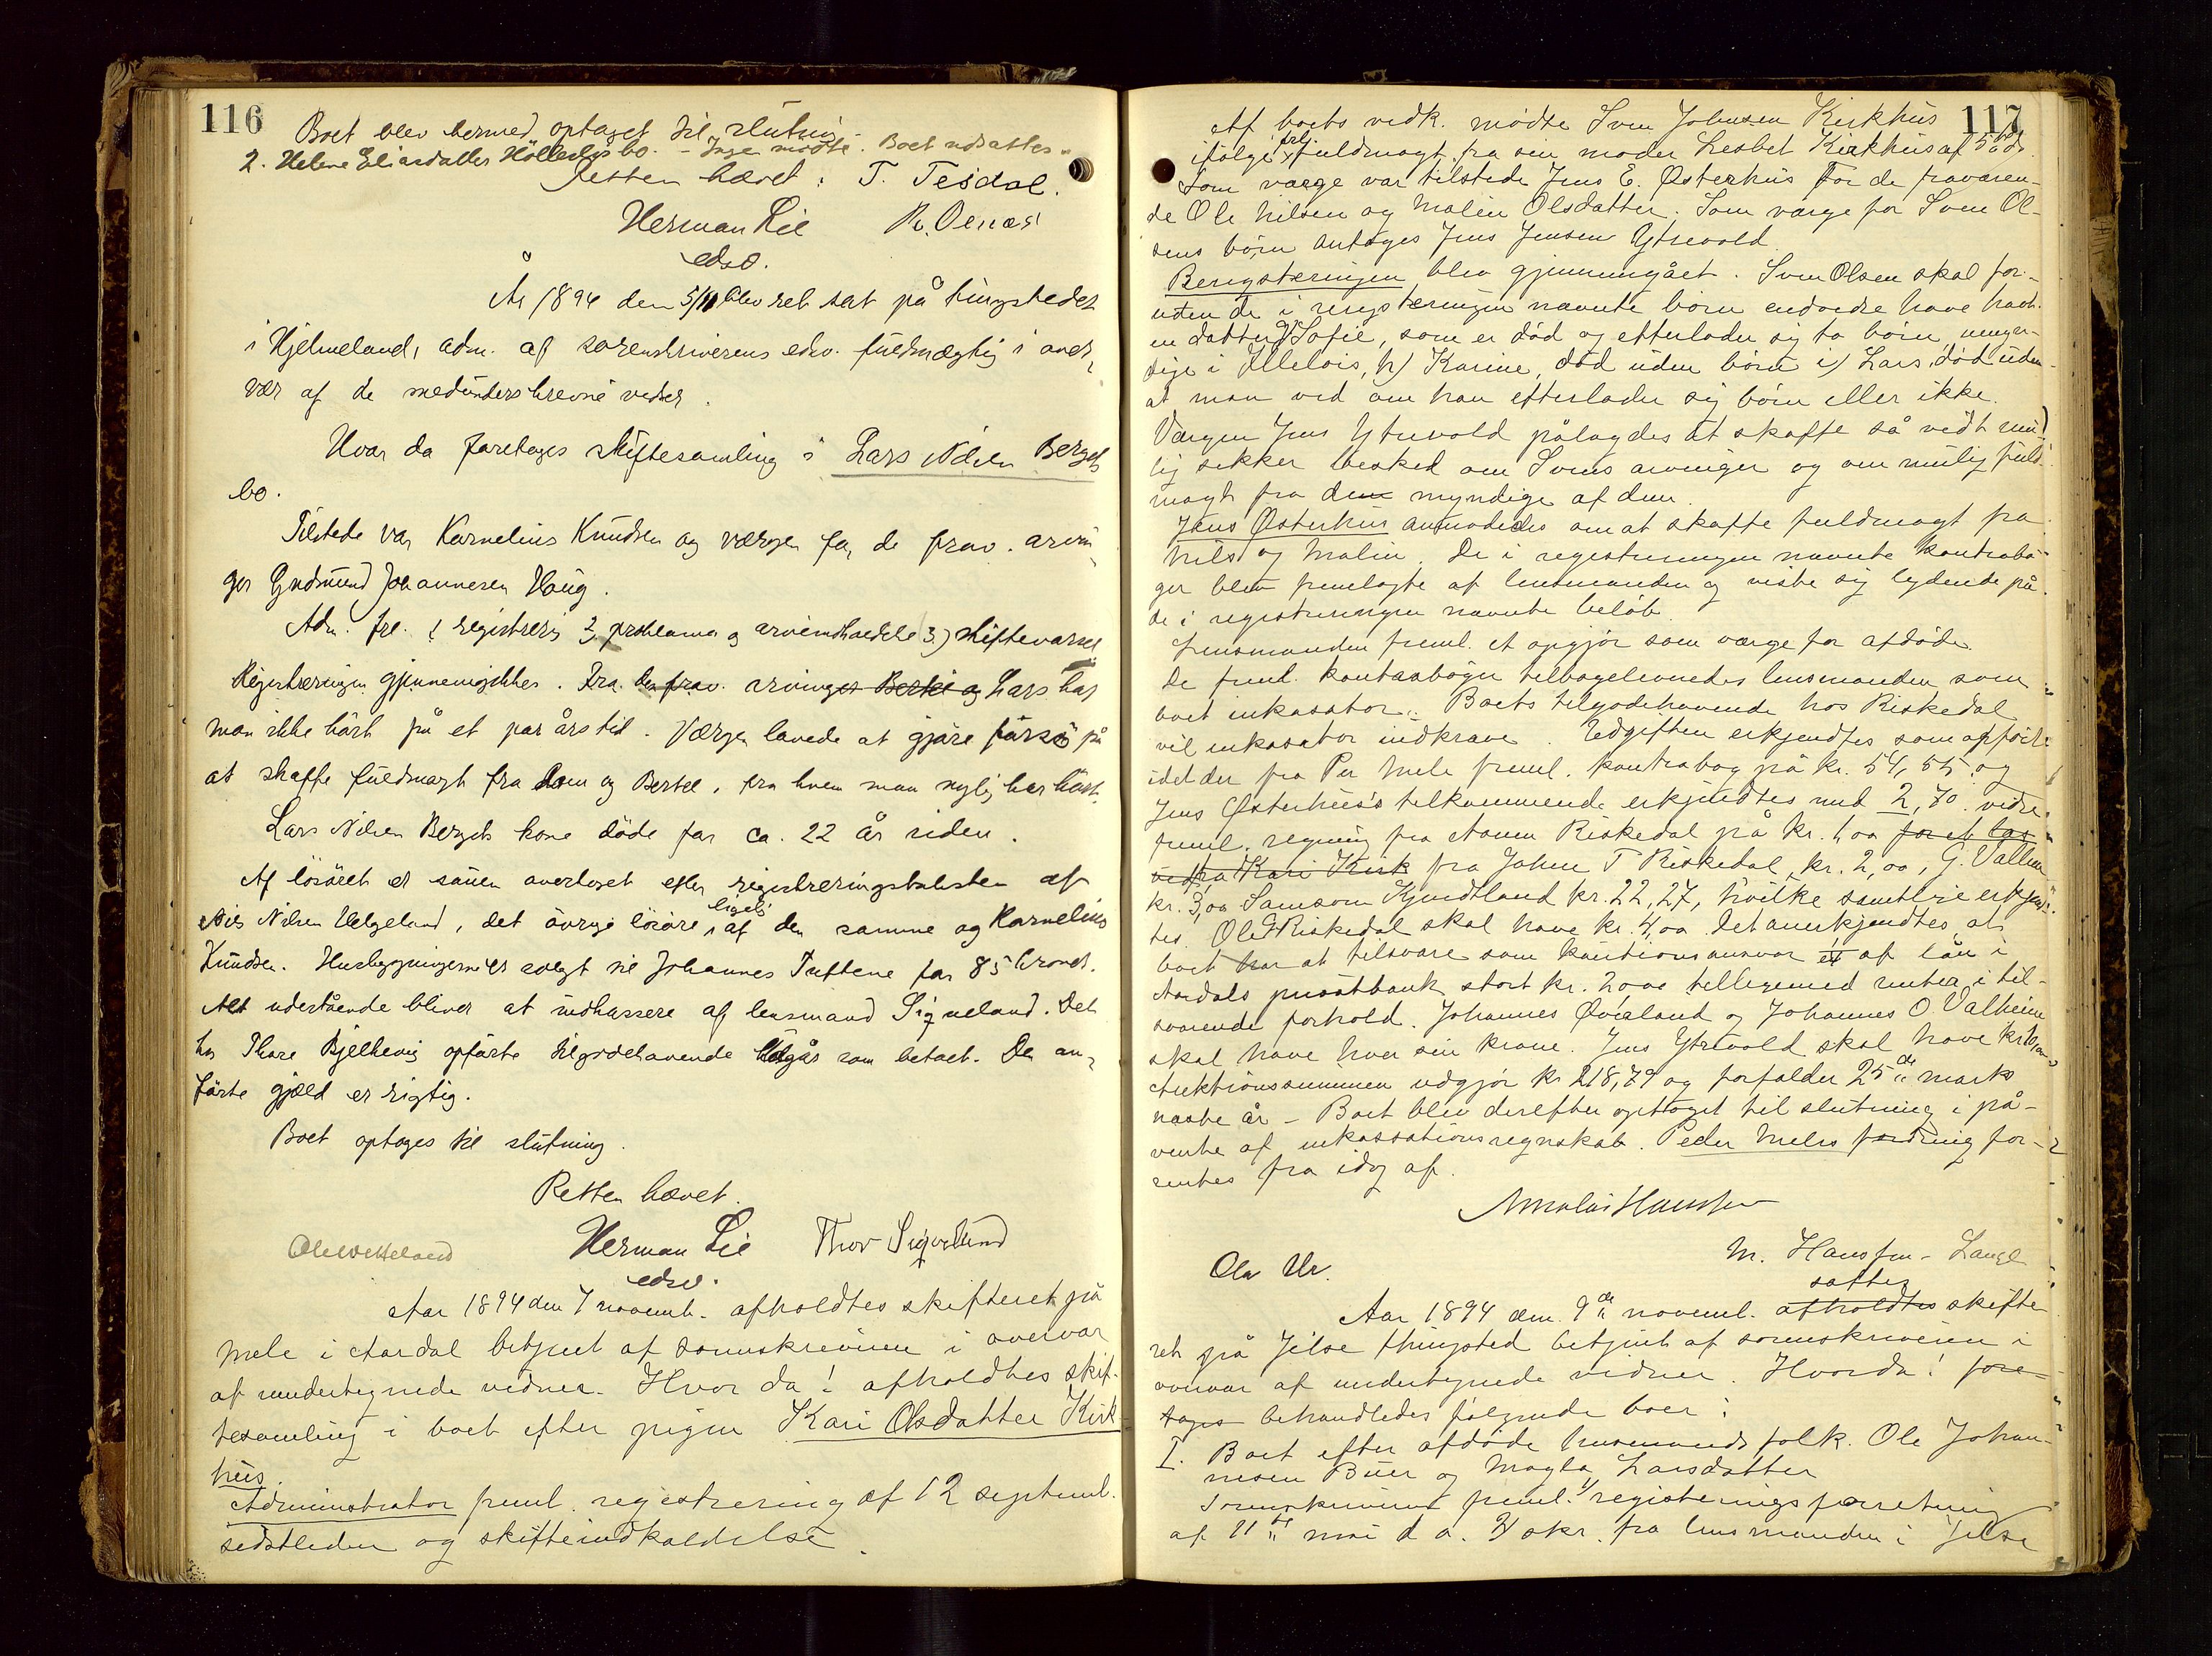 116
Boet blev hermed optaget til slutning.
2. Helene Eliasdatter Hølleslis bo. – Ingen mødte. Boet udsattes.
Retten hævet. T. Tesdal.
Herman Lie R. Oenæs
edsv.
År 1894 den 5/11 blev ret sat på tingstedet
i Hjelmeland, adm. af sorenskriverens edsv. fuldmægtig i over,
vær af de medunderskrevne vidner.
Hvor da foretoges skiftesamling i Lars Nilsen Bergets
bo.
Tilstede var Kornelius Knudsen og værgen for de frav. arvin,
ger Gudmund Johannesen Haug.
Adm. fre. 1 registrering 2, proklama og arveindkaldelse 3) skiftevarsel
Registreringen gjennemgikkes. Fra den frav. arvinges Bertel og Lars har
man ikke hørt på et par års tid. Værgen lovede at gjøre forsø på
at skaffe fuldmagt fra ham og Bertel, fra hvem man nylig har hørt.
Lars Nilsen Bergets kone døde for ca. 22 år siden.
Af løsøret er sauen overtaget efter registreringstaksten af
Nils Nilsen Helgeland, det øvrige løsøre ligeså af den samme og Kornelius
Knudsen. Husbygningerne er solgt til Johannes Tuftene for 85 kroner.
Alt udestående bliver at indkassere af lensmand Sigveland. Det
hos Thore Bjelkevig opførte tilgodehavende udgår som betalt. Den an,
førte gjæld er rigtig.
Boet optoges til slutning.
Retten hævet.
Ole Wetteland Herman Lie Thor Sigvelund
edsv.
Aar 1894 den 7 novemb. afholdtes skifteret på
Mele i Aardal betjent af sorenskriveren i overvær
af undertegnede vidner. Hvor da! afholdtes skif-
tesamling i boet efter pigen Kari Olsdatter Kirk-
hus.
Administrator freml. registrering af 12 septemb.
sidstleden og skifteindkaldelse.
117
Af boets vedk. mødte Sven Johnsen Kirkhus
ifølge frl. fuldmagt fra sin moder Lesbet Kirkhus af 5 ds.
Som værge var tilstede Jens E. Østerhus for de fraværen-
de Ole Nilsen og Malin Olsdatter. Som værge for Sven Ol-
sens børn antoges Jens Jensen Ytrevold.
Beregistreringen blev gjennemgået. Sven Olsen skal for-
uden de i registreringen nævnte børn endvidre have havt
en datter g) Sofie, som er død og efterlader sig to børn, umyn-
dige i Illelois, h) Karine, død uden børn i) Lars, død uden
at man ved om han efterlader sig børn eller ikke.
Værgen Jens Ytrevold pålagdes at skaffe så vidt mu-
lig sikker besked om Svens arvinger og om mulig fuld-
magt fra dem myndige af dem.
Jens Østerhus anmodedes om at skaffe fuldmagt fra
Nils og Malin. De i registreringen nævnte kontrabø-
ger blev fremlagte af lensmanden og viste sig lydende på
de i registreringen nævnte beløb.
Lensmanden freml. et opgjør som værge for afdøde.
De freml. kontrabøger tilbageleveredes lensmanden som
boet inkasator. Boets tilgodehavende hos Riskedal
vil inkasator indkræve. Udgiften erkjendtes som opførte
idet der fra Per Mele freml. kontrabog på kr. 54,55 og
Jens Østerhus's tilkommende erkjendtes med 2,70. vidre
freml. regning fra Aanen Riskedal på kr. 1,00 for et las
ved fra Kari Kirk fra John T Riskedal kr. 2,00, G. Valheim
kr. 3,00 Samson Kjendtland kr. 22,27, hvilke samtlige erkjend-
tes. Ole Riskedal skal have kr. 4,00. Det anerkjendtes, at
boet har at tilsvare som kautionsansvar et af lån i
Aardals privatbank stort kr. 20,00 tilligemed renter i til-
svarende forhold. Johannes Øvreland og Johannes O. Valheim
skal have hver sin krone. Jens Ytrevold skal have kr.
Auktionssummen udgjør kr. 218,79 og forfalder 25de marts
næste år – Boet blev derefter optaget til slutning i på-
vente af inkassationsregnskab. Peder Meles fordring for-
rentes fra idag af.
Nikolai Hansen
Ola Ur. M. Hansen-Lange
sattes
Aar 1894 den 9de novemb. afholdtes skifte
ret på Jelse thingsted betjent af sorenskriveren i
overvær af undertegnede vidner. Hvorda! fore-
toges behandledes følgende boer:
I. Boet efter afdøde husmandsfolk. Ole Johan-
nesen Buer og Magla Larsdatter
Sorenskriveren freml. 1/ registreringsforretning
af 11te mai d a. 2/ skr. fra lensmanden i Jelse